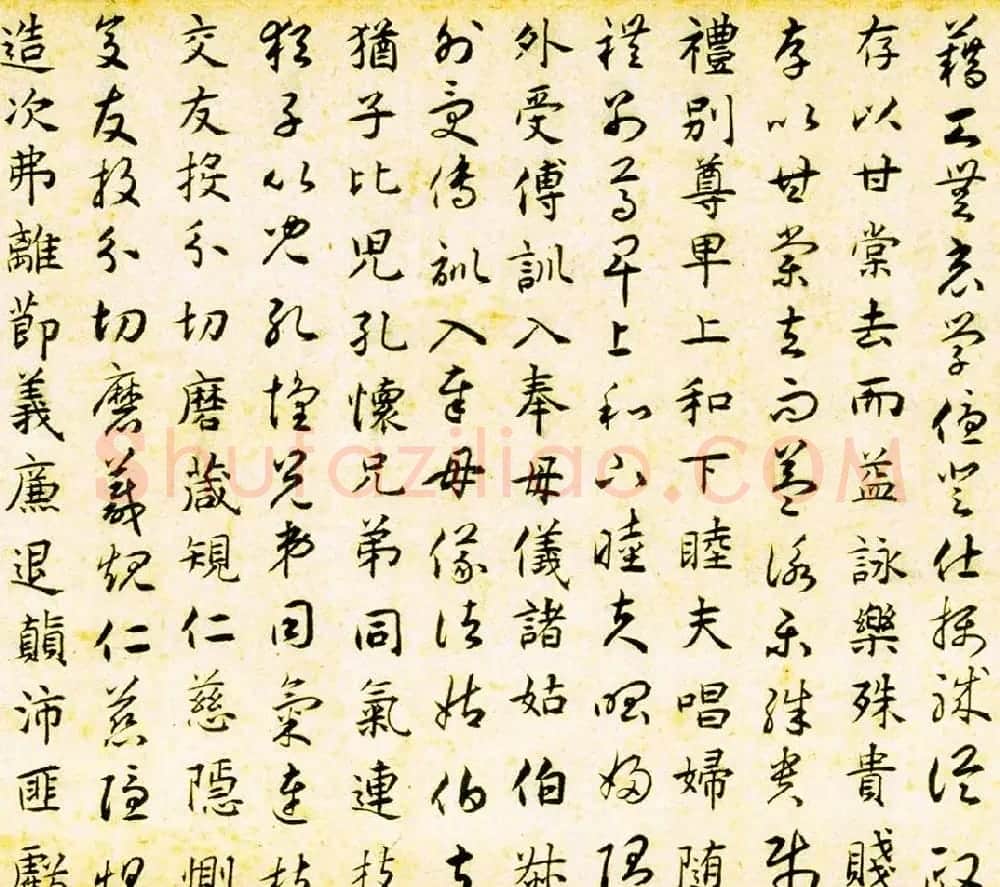 藉甚無竟學優登仕攝職從政
存以甘棠去而益詠樂殊貴賤
存以甘棠去而益詠樂殊貴賤
禮別尊卑上和下睦夫唱婦随
禮別尊卑上和下睦夫唱婦随
外受傅訓入奉母儀諸姑伯叔
外受傅訓入奉母儀諸姑伯叔
猶子比兒孔懷兄弟同氣連枝
猶子比兒孔懷兄弟同氣連枝
交友投分切磨箴規仁慈隱惻
交友投分切磨箴規仁慈隱惻
造次弗離節義廉退顛沛匪虧
Shufaziliao.COM